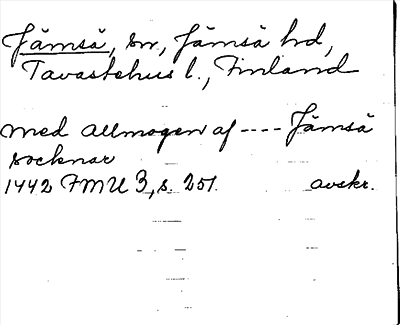 Jämsä, sn, Jämsä hd,
Tavastehus l., Finland
med allmogen af ---- Jämsä
socknar
1442 FMU 3, s. 251. avskr.